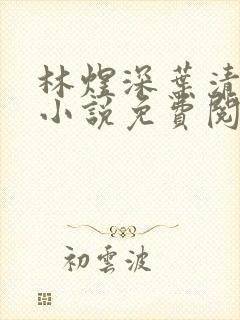 林煜深葉清
小說免費閱
初雲波